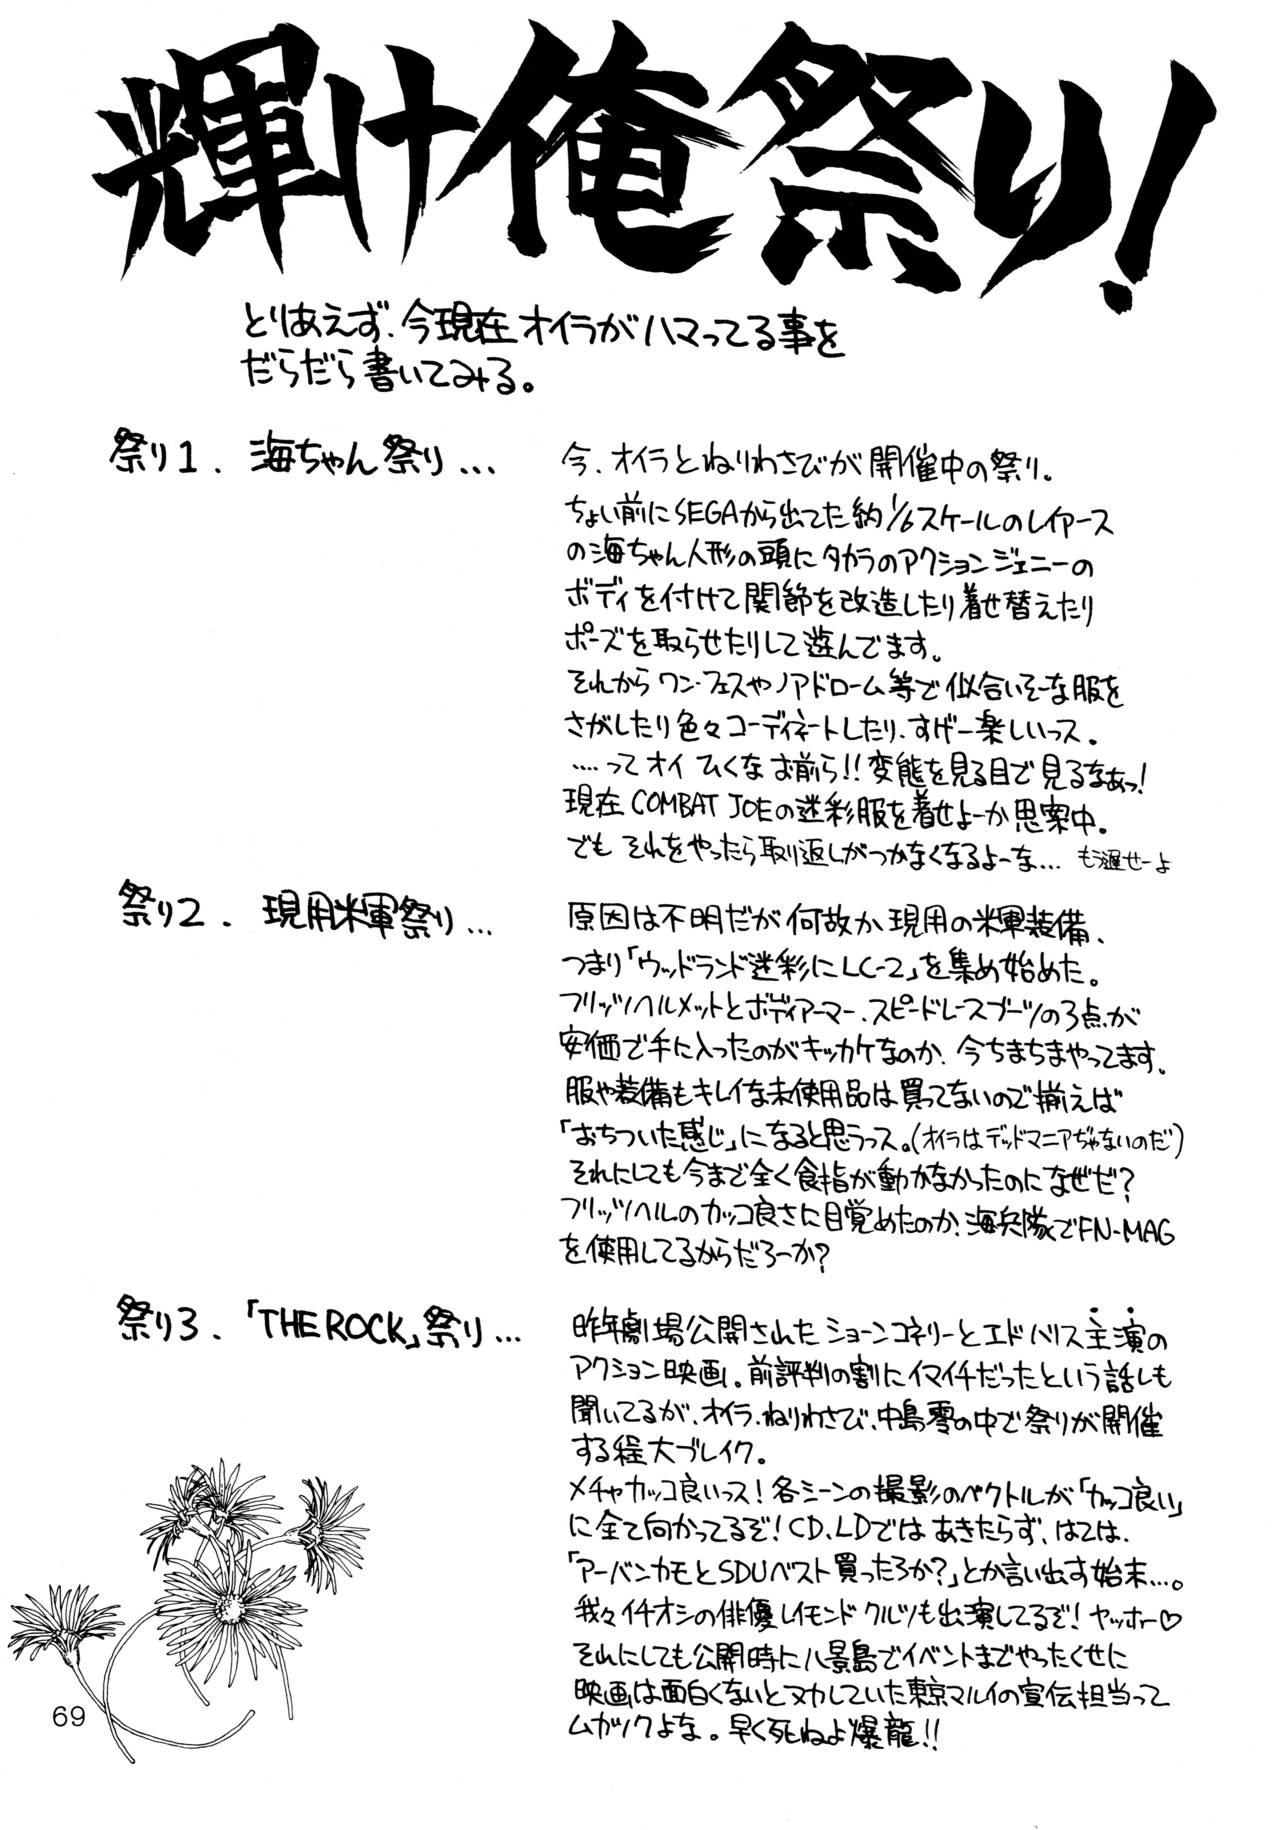 輝け俺祭り!
とりあえず、今現在オイラがハマってる事を
だらだら書いてみる。
祭り1. 海ちゃん祭り...
今、オイラとねりわさびが開催中の祭り。
ちょい前にSEGAから出てた約1/6スケールのレイアース
の海ちゃん人形の頭にタカラのアクションジェニーの
ボディを付けて関節を改造したり着せ替えたり
ポーズを取らせたりして遊んでます。
それからワン・フェスやノアドローム等で似合いそーな服を
さがしたり色々コーディネートしたり、すげー楽しいっス。
....ってオイ ひくなお前ら!!変態を見る目で見るなぁっ!
現在COMBAT JOEの迷彩服を着せよーか思案中。
でもそれをやったら取り返しがつかなくなるよーな... もう遅せーよ
祭り2. 現用米軍祭り...
原因は不明だが何故か現用の米軍装備、
つまり「ウッドランド迷彩にLC-2」を集め始めた。
フリッツヘルメットとボディアーマー、スピードレースブーツの3点が
安価で手に入ったのがキッカケなのか、今ちまちまやってます。
服や装備もキレイな未使用品は買ってないので揃えば
「おちついた感じ」になると思うっス。(オイラはデッドマニアぢゃないのだ)
それにしても今まで全く食指が動かなかったのになぜだ?
フリッツヘルのカッコ良さに目覚めたのか、海兵隊でFN-MAG
を使用してるからだろーか?
祭り3. 「THE ROCK」祭り...
昨年劇場公開されたショーンコネリーとエドハリス主演の
アクション映画。前評判の割にイマイチだったという話しも
聞いてるが、オイラ、ねりわさび、中島零の中で祭りが開催
する程大ブレイク。
メチャカッコ良いっス!各シーンの撮影のベクトルが「カッコ良い」
に全て向かってるぞ!CD、LDではあきたらず、はては、
「アーバンカモとSDUベスト買ったろか?」とか言い出す始末...。
我々イチオシの俳優レイモンドクルツも出演してるぞ!ヤッホー♡
それにしても公開時に八景島でイベントまでやったくせに
映画は面白くないとヌカしていた東京マルイの宣伝担当って
ムカツクよな。早く死ねよ爆龍!!
69